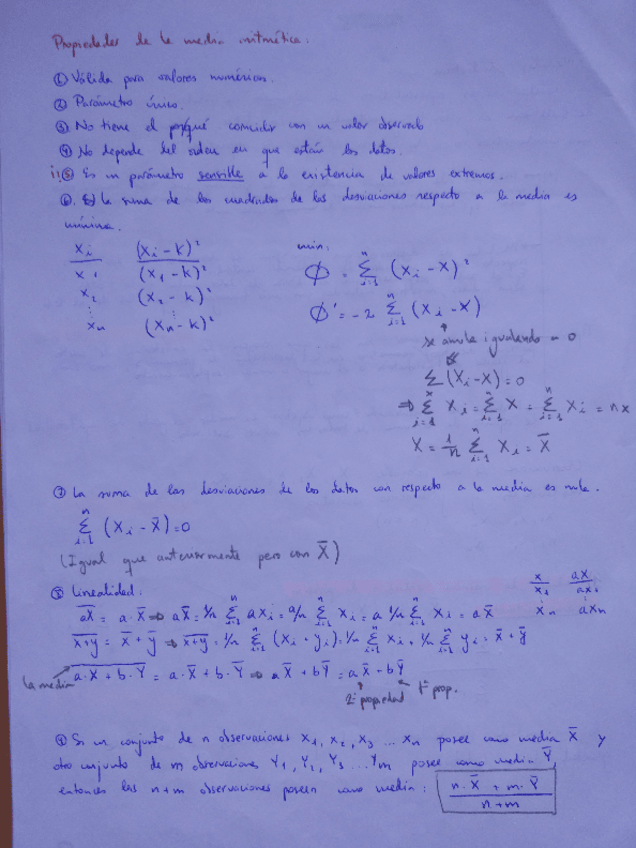 Propiedades de la media aritmética.
① Válida para valores numéricos.
② Parámetro único.
③ No tiene el porqué coincidir con un valor observado
④ No depende del orden en que están los datos.
⑤ Es un parámetro sensible a la existencia de valores extremos.
⑥. La suma de los cuadrados de las desviaciones respecto a la media es
mínima.
xi (xi - k)² min,
x1 (x1 - k)² ϕ = Σ_{i=1}^{n} (xi - x)²
x2 (x2 - k)²
⋮ ϕ' = -2 Σ_{i=1}^{n} (xi - x)
xn (xn - k)²
se anula igualando a 0
Σ(xi - x) = 0
⇒ Σ_{i=1}^{n} xi = Σ_{i=1}^{n} x = Σ_{i=1}^{n} xi = nx
x = 1/n Σ_{i=1}^{n} xi = x̄
⑦ La suma de las desviaciones de los datos con respecto a la media es nula.
Σ_{i=1}^{n} (xi - x̄) = 0
(Igual que anteriormente pero con X̄)
⑧ Linealidad:
x aX
x1 ax1
xn axn
aX̄ = a · X̄ ⇒ aX̄ = 1/n Σ_{i=1}^{n} axi = a/n Σ_{i=1}^{n} xi = a 1/n Σ_{i=1}^{n} xi = aX̄
x+y = x̄ + ȳ ⇒ x+y = 1/n Σ_{i=1}^{n} (xi + yi) = 1/n Σ_{i=1}^{n} xi + 1/n Σ_{i=1}^{n} yi = x̄ + ȳ
la media a·X + b·Y = a·X̄ + b·Ȳ ⇒ aX̄ + bȲ = aX̄ + bȲ
2ª propiedad 1ª prop.
⑨ Si un conjunto de n observaciones x1, x2, x3 ... xn posee como media X̄ y
otro conjunto de m observaciones Y1, Y2, Y3 ... Ym posee como media Ȳ
entonces las n+m observaciones poseen como media: (n·X̄ + m·Ȳ)/(n+m)